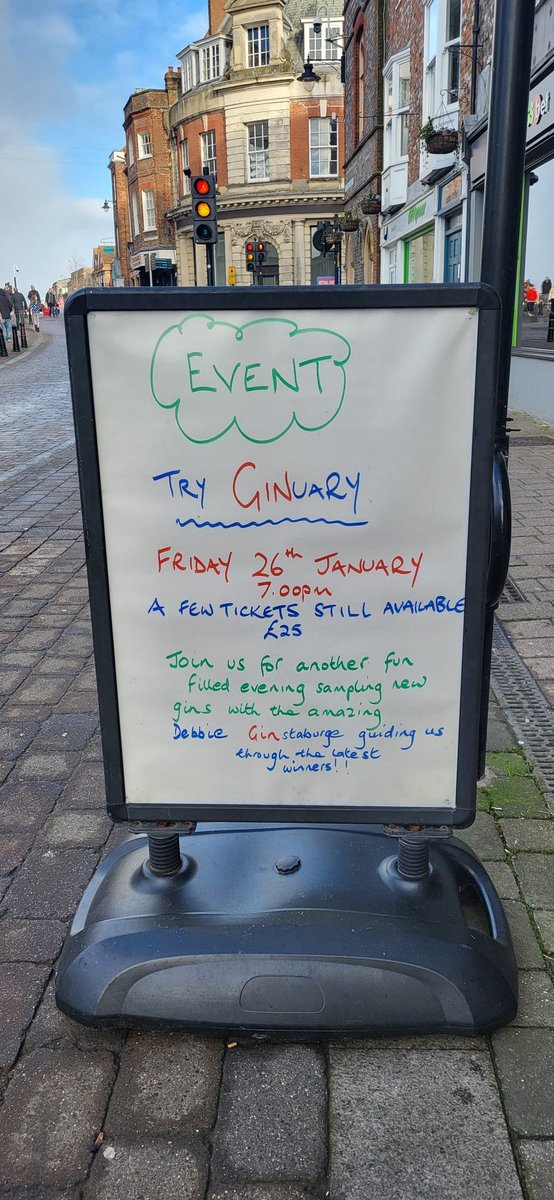 EVENT
TRY GINUARY
FRIDAY 26th JANUARY
7.00pm
A FEW TICKETS STILL AVAILABLE
£25
Join us for another fun
filled evening sampling new
gins with the amazing
Debbie Ginstaburge guiding us
through the latest
winners!!